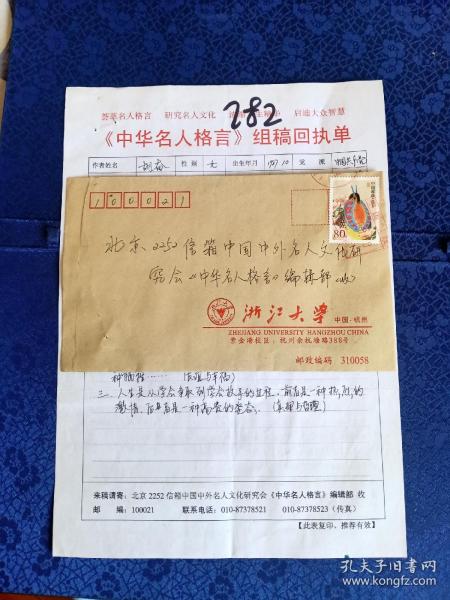 荟萃名人格言 研究名人文化 启迪大众智慧
282
《中华名人格言》组稿回执单
作者姓名 性别 出生年月 党派
100021
80
北京2252信箱中国中外名人文化研
究会《中华名人格言》编辑部(收)
浙江大学 中国·杭州
ZHEJIANG UNIVERSITY HANGZHOU CHINA
紫金港校区：杭州余杭塘路388号
邮政编码 310058
三、人生是从学会争取到学会放弃的过程，前者是一种
激情，后者是一种高贵的
来稿请寄：北京2252信箱中国中外名人文化研究会《中华名人格言》编辑部 收
邮 编：100021 联系电话：010-87378521 010-87378523（传真）
【此表复印、推荐有效】
孔夫子旧书网
www.kongfz.com